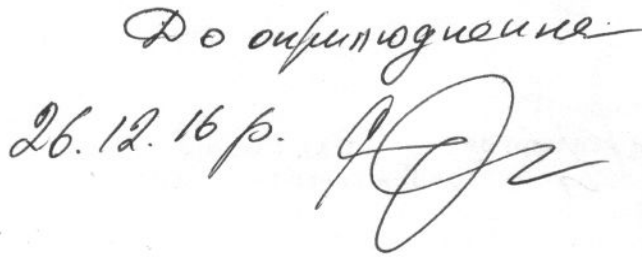 До оприлюднення
26.12.16 р.